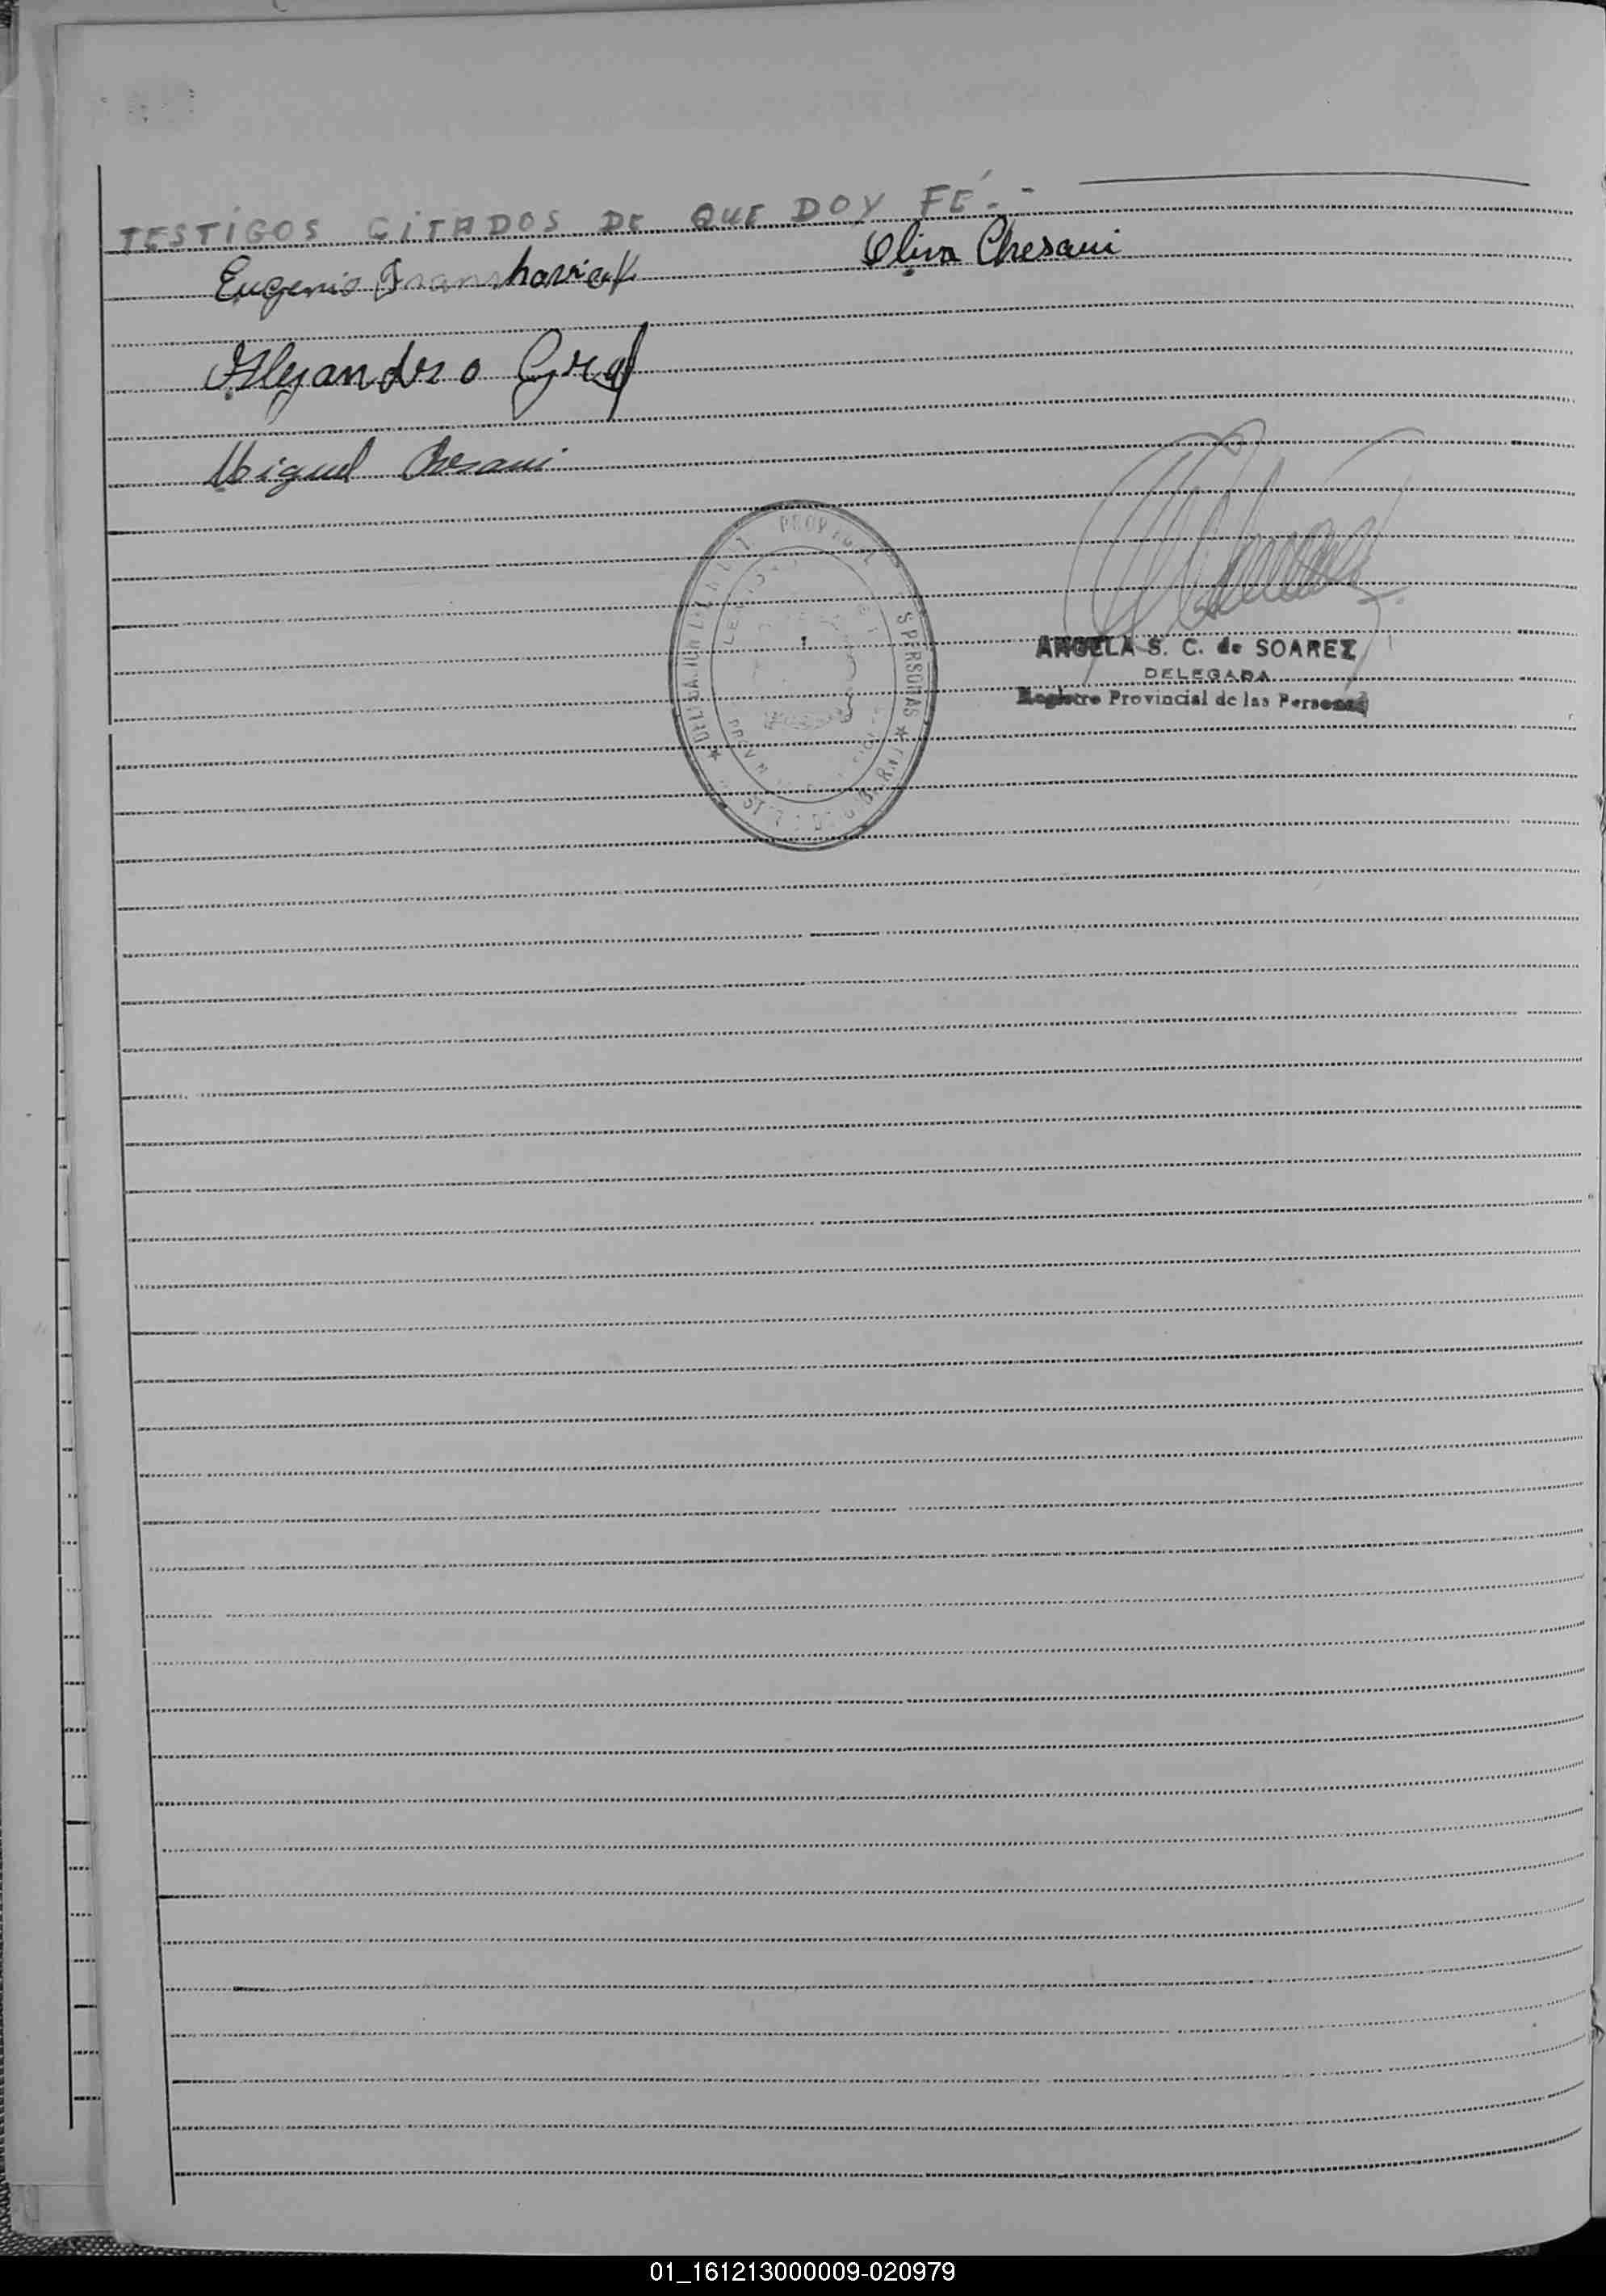 TESTIGOS CITADOS DE QUE DOY FÉ.-
Eugenio Oliva Chesani
Alejandro Graf
Miguel Chesani
PERSONAS
ANGELA S. C. de SOAREZ
DELEGADA
Registro Provincial de las Personas
01_161213000009-020979